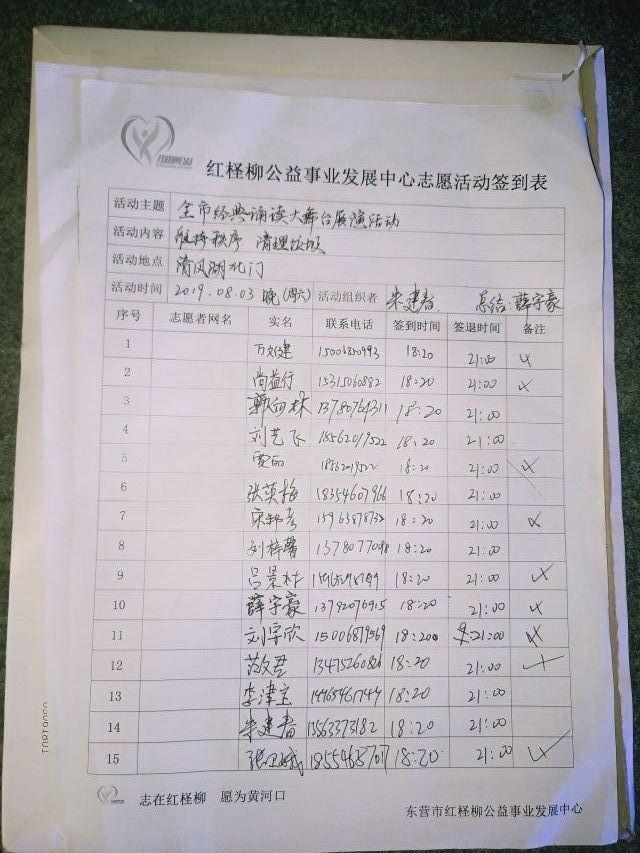 红柽柳公益事业发展中心志愿活动签到表
活动主题 全市经典诵读大舞台展演活动
活动内容 维持秩序 清理垃圾
活动地点 清风湖北门
活动时间 2019.08.03 晚(周六) 活动组织者 宋建春 总结:薛宇豪
序号 志愿者网名 实名 联系电话 签到时间 签退时间 备注
1 18:20 21:00
2 尚益行 15315060882 18:20 21:00
3 郭向林 13780764311 18:20 21:00
4 刘艺飞 18562019522 18:20 21:00
5 贾丽 18562019522 18:20 21:00
6 张英梅 18354607966 18:20 21:00
7 18:20 21:00
8 刘梓馨 18:20 21:00
9 吕景林 18:20 21:00
10 薛宇豪 13792076915 18:20 21:00
11 刘宇欣 15006879569 18:20 21:00
12 13475260826 18:20 21:00
13 李津宝 18:20 21:00
14 宋建春 13563373182 18:20 21:00
15 张卫娥 18554637701 18:20 21:00
志在红柽柳 愿为黄河口
东营市红柽柳公益事业发展中心